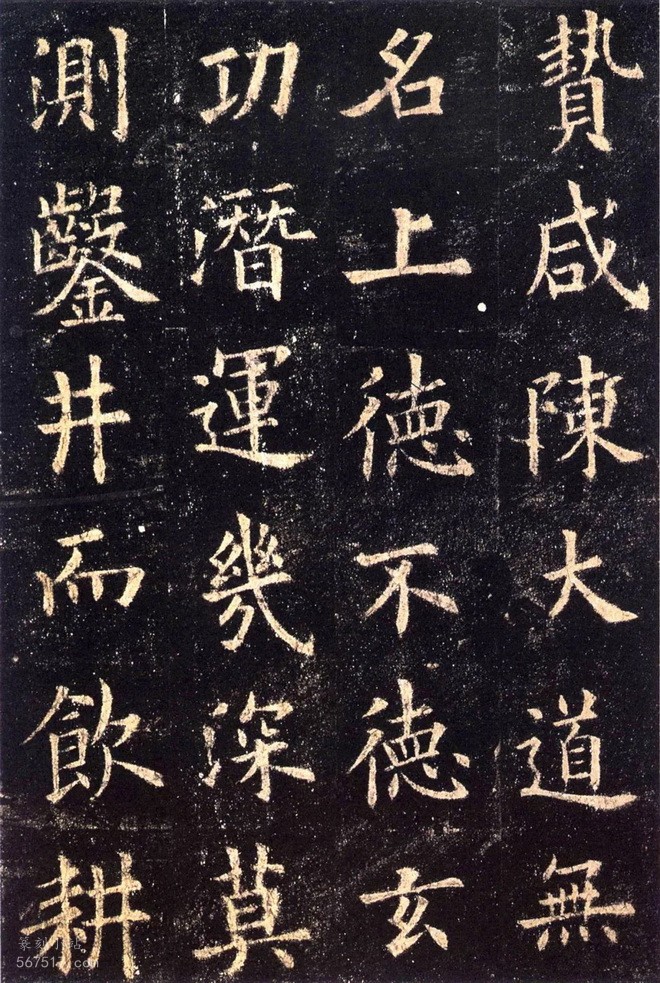 贄咸陳大道無
名上德不德玄
功潛運幾深莫
測鑿井而飲耕
篆刻小站